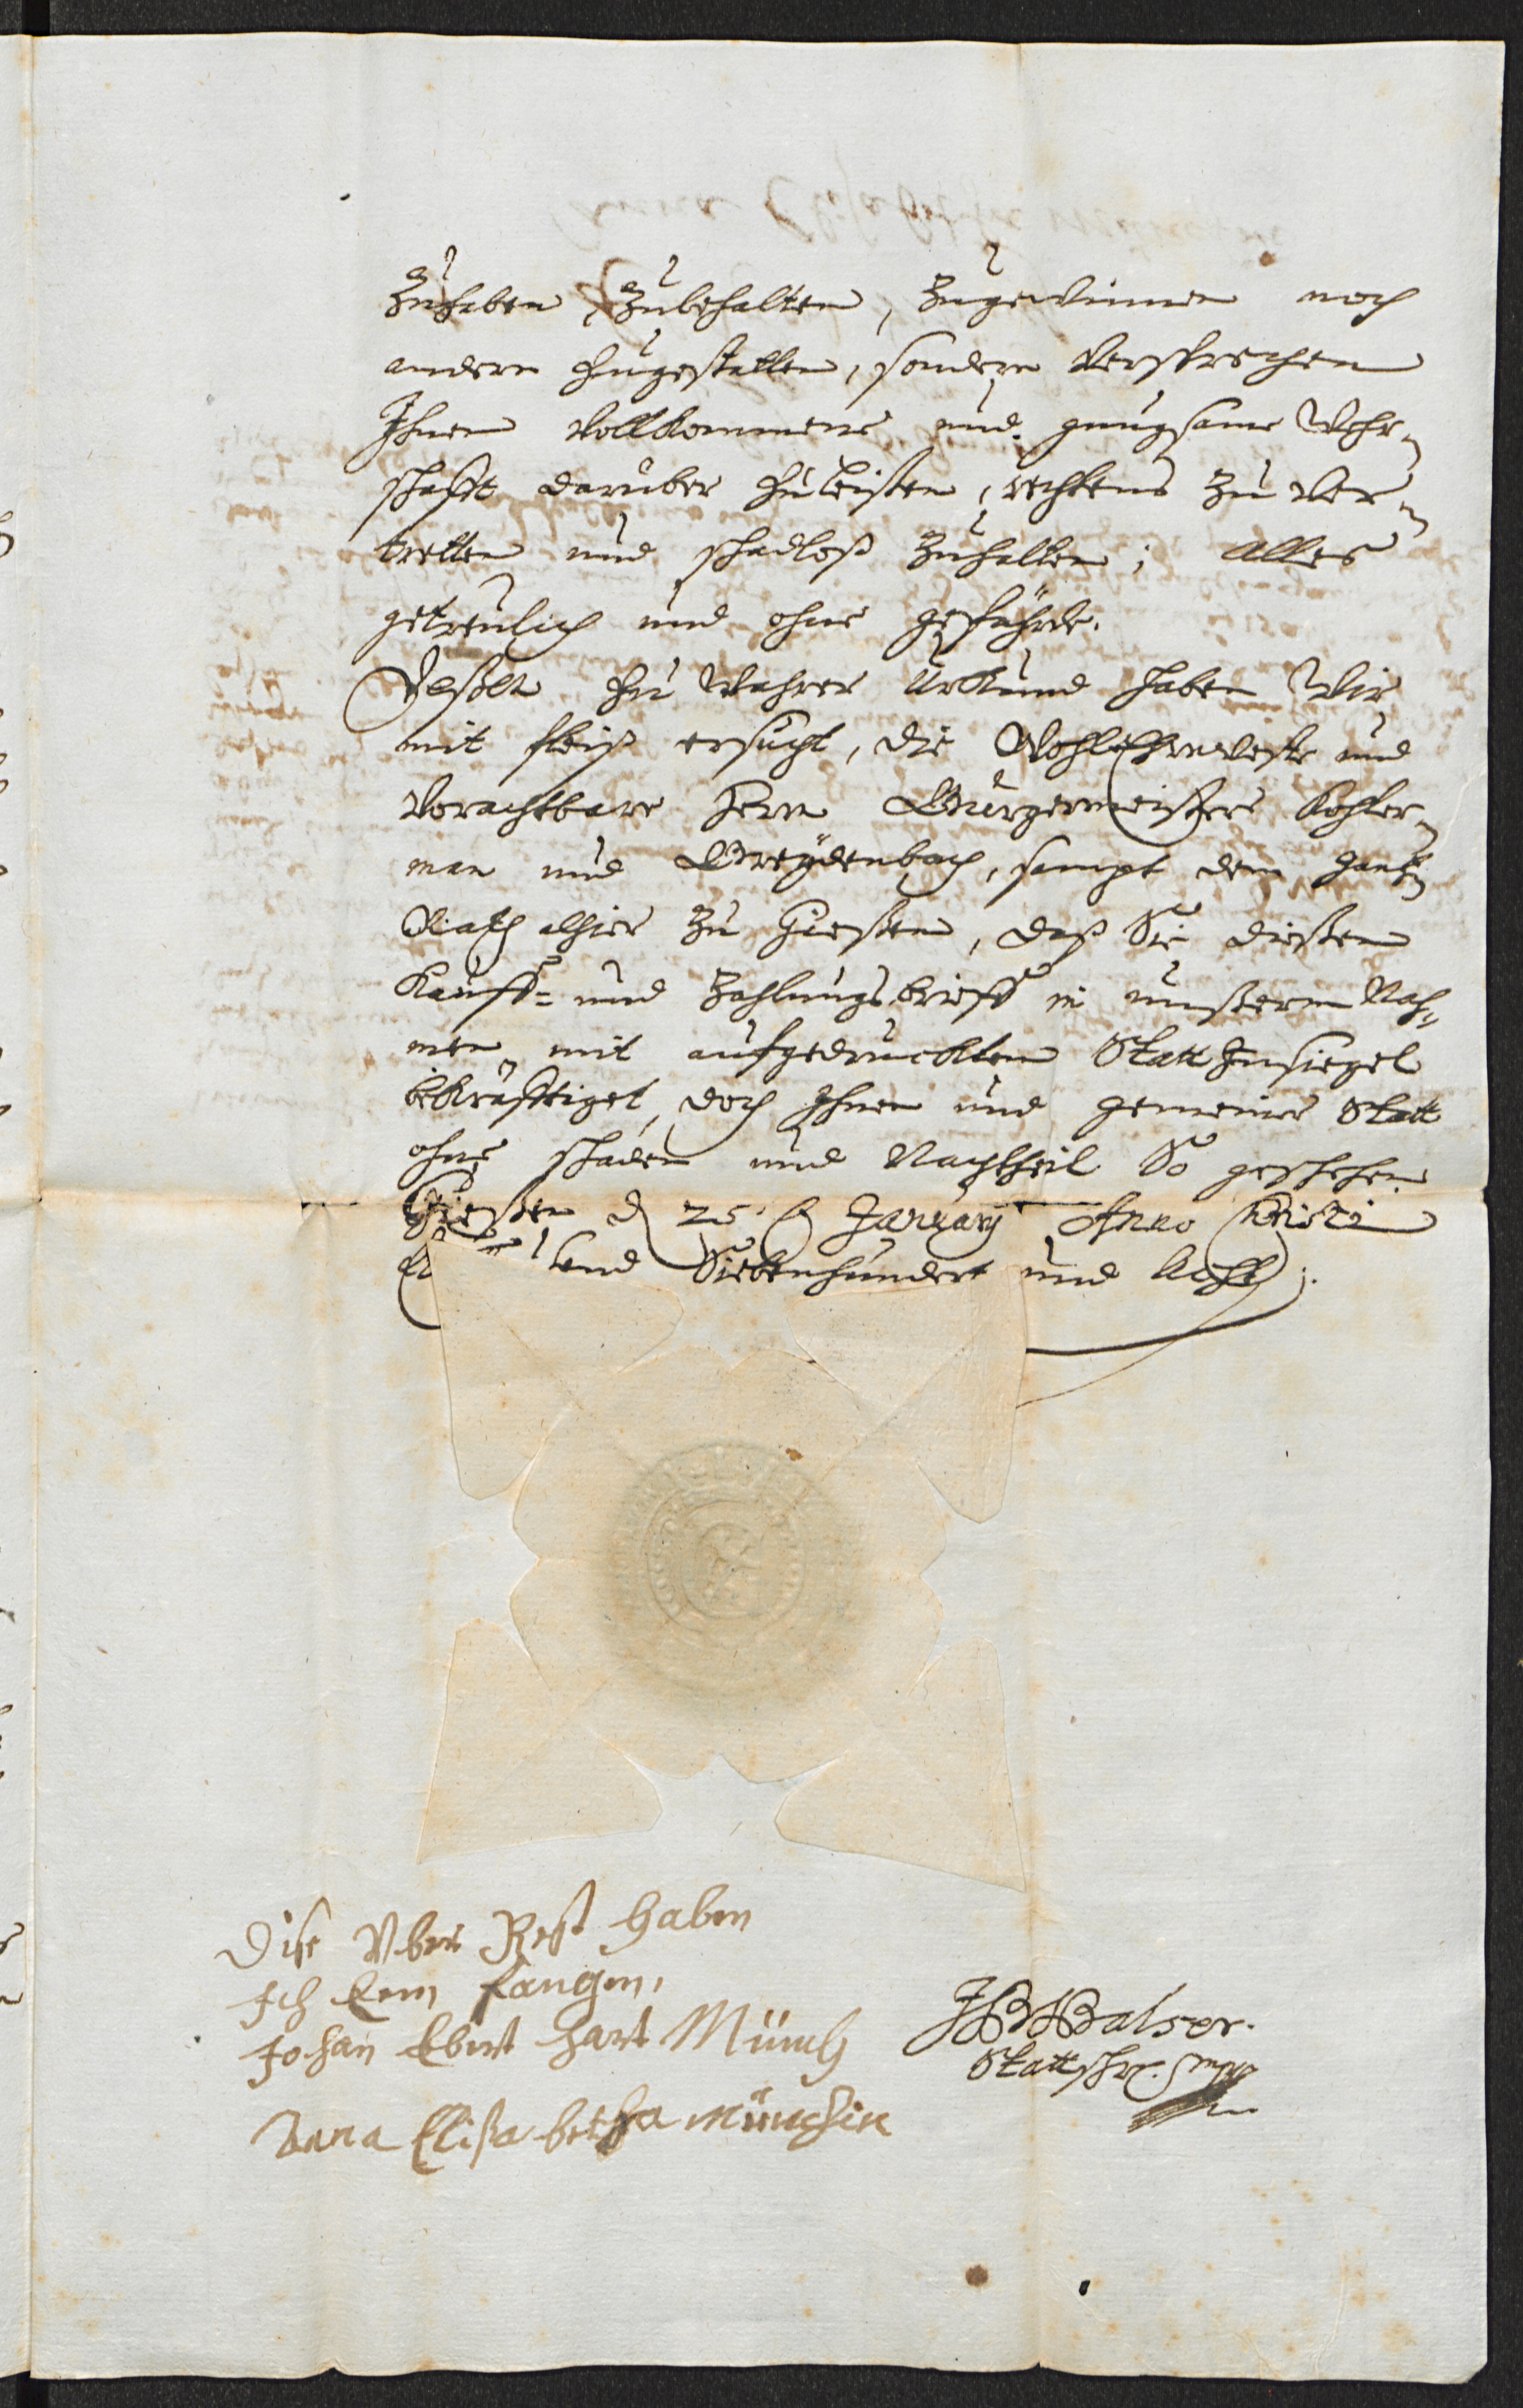 Zuhaben, Zubehalten, Zugewinnen noch
andern zugestatten, sondern versprechen
Ihnen vollkommene und gnugsame Wehr-
schafft darüber zuleisten, rechtens zu ver-
tretten und schadloß zuhalten; Alles
getreulich und ohne gefährde.
Deßen zu wahrer Urkund haben Wir
mit fleiß ersucht, die WohlEhrnveste und
vorachtbare Herrn Bürgermeistere Kohler-
man und Breydenbach, sampt dem gantzen
Rath alhier zu Gießen, daß Sie dießen
Kauff= und Zahlungsbrieff in unßerm Nah=
men mit aufgedrucktem Statt Insiegel
bekräfftiget, doch Ihnen und gemeiner Statt
ohne schaden und Nachtheil So geschehen
Gießen d 25. January Anno Christi
end Siebenhundert und Acht.
Dise Vber Rest haben
Ich Em fangen,
Johan Ebert hart Münch
Anna Elisa betha Münchin
JBBalser.
Stattschr. mpp